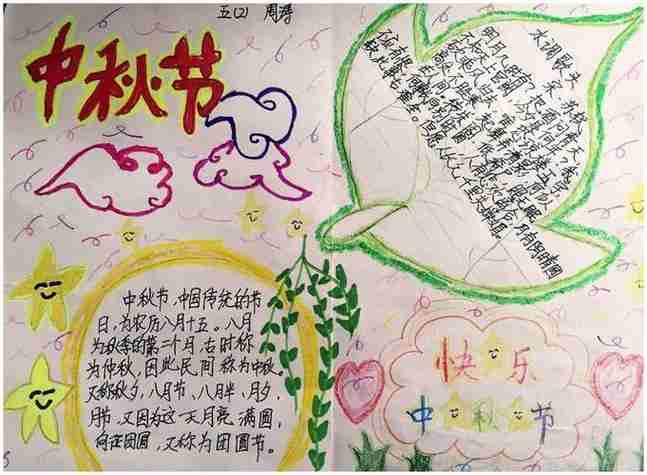 五(2) 周
中秋节
水调歌头
宋 苏轼
明月几时有?把酒问青天。
不知天上宫阙,今夕是何年?我
欲乘风归去,又恐琼楼玉宇,
高处不胜寒。起舞弄清影,何似
在人间。转朱阁,低绮户,照无眠。
不应有恨,何事长向别时圆?人有悲欢离合,月有阴晴圆
缺,此事古难全。但愿人长久,千里共婵娟。
中秋节,中国传统的节
日,为农历八月十五。八月
为秋季的第二个月,古时称
为仲秋,因此民间称为中秋,
又称秋夕、八月节、八月半、月夕、
月节,又因为这一天月亮满圆,
向在团圆,又称为团圆节。
快乐
中秋节